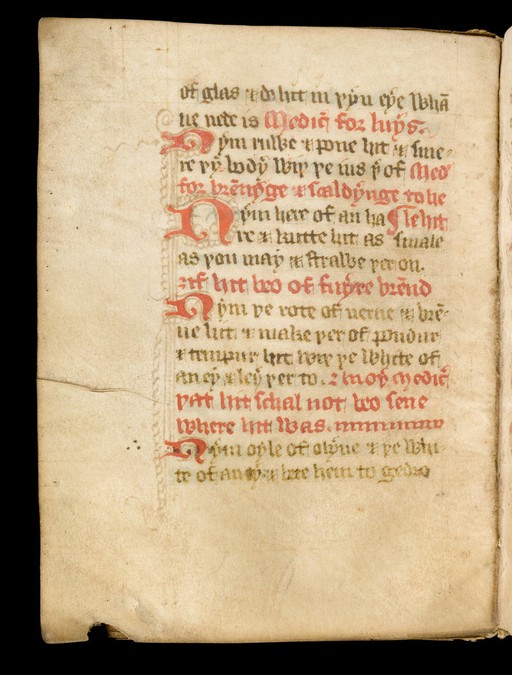 of glas & do hit in þyn eye whā
ne nede is Medicē for luys.
Nym ruwe & poune hit & sme-
re þy body wiþ þe ius þ of Med'
for brēnynge & scaldynge to he
Nym here of an ha ¶ le hit
re & kutte hit as smale
as you may & strawe þer on.
¶if hit beo of fuyre brēnd
Nym þe rote of & brē-
ne hit & make þer of poudur
& tempur hit wiþ þe white of
an ey & ley þer to. An oþ medicē
þat hit schal not beo sene
where hit was.
Nym oyle of olyue & þe whi-
te of an ey & bete hem to gedre